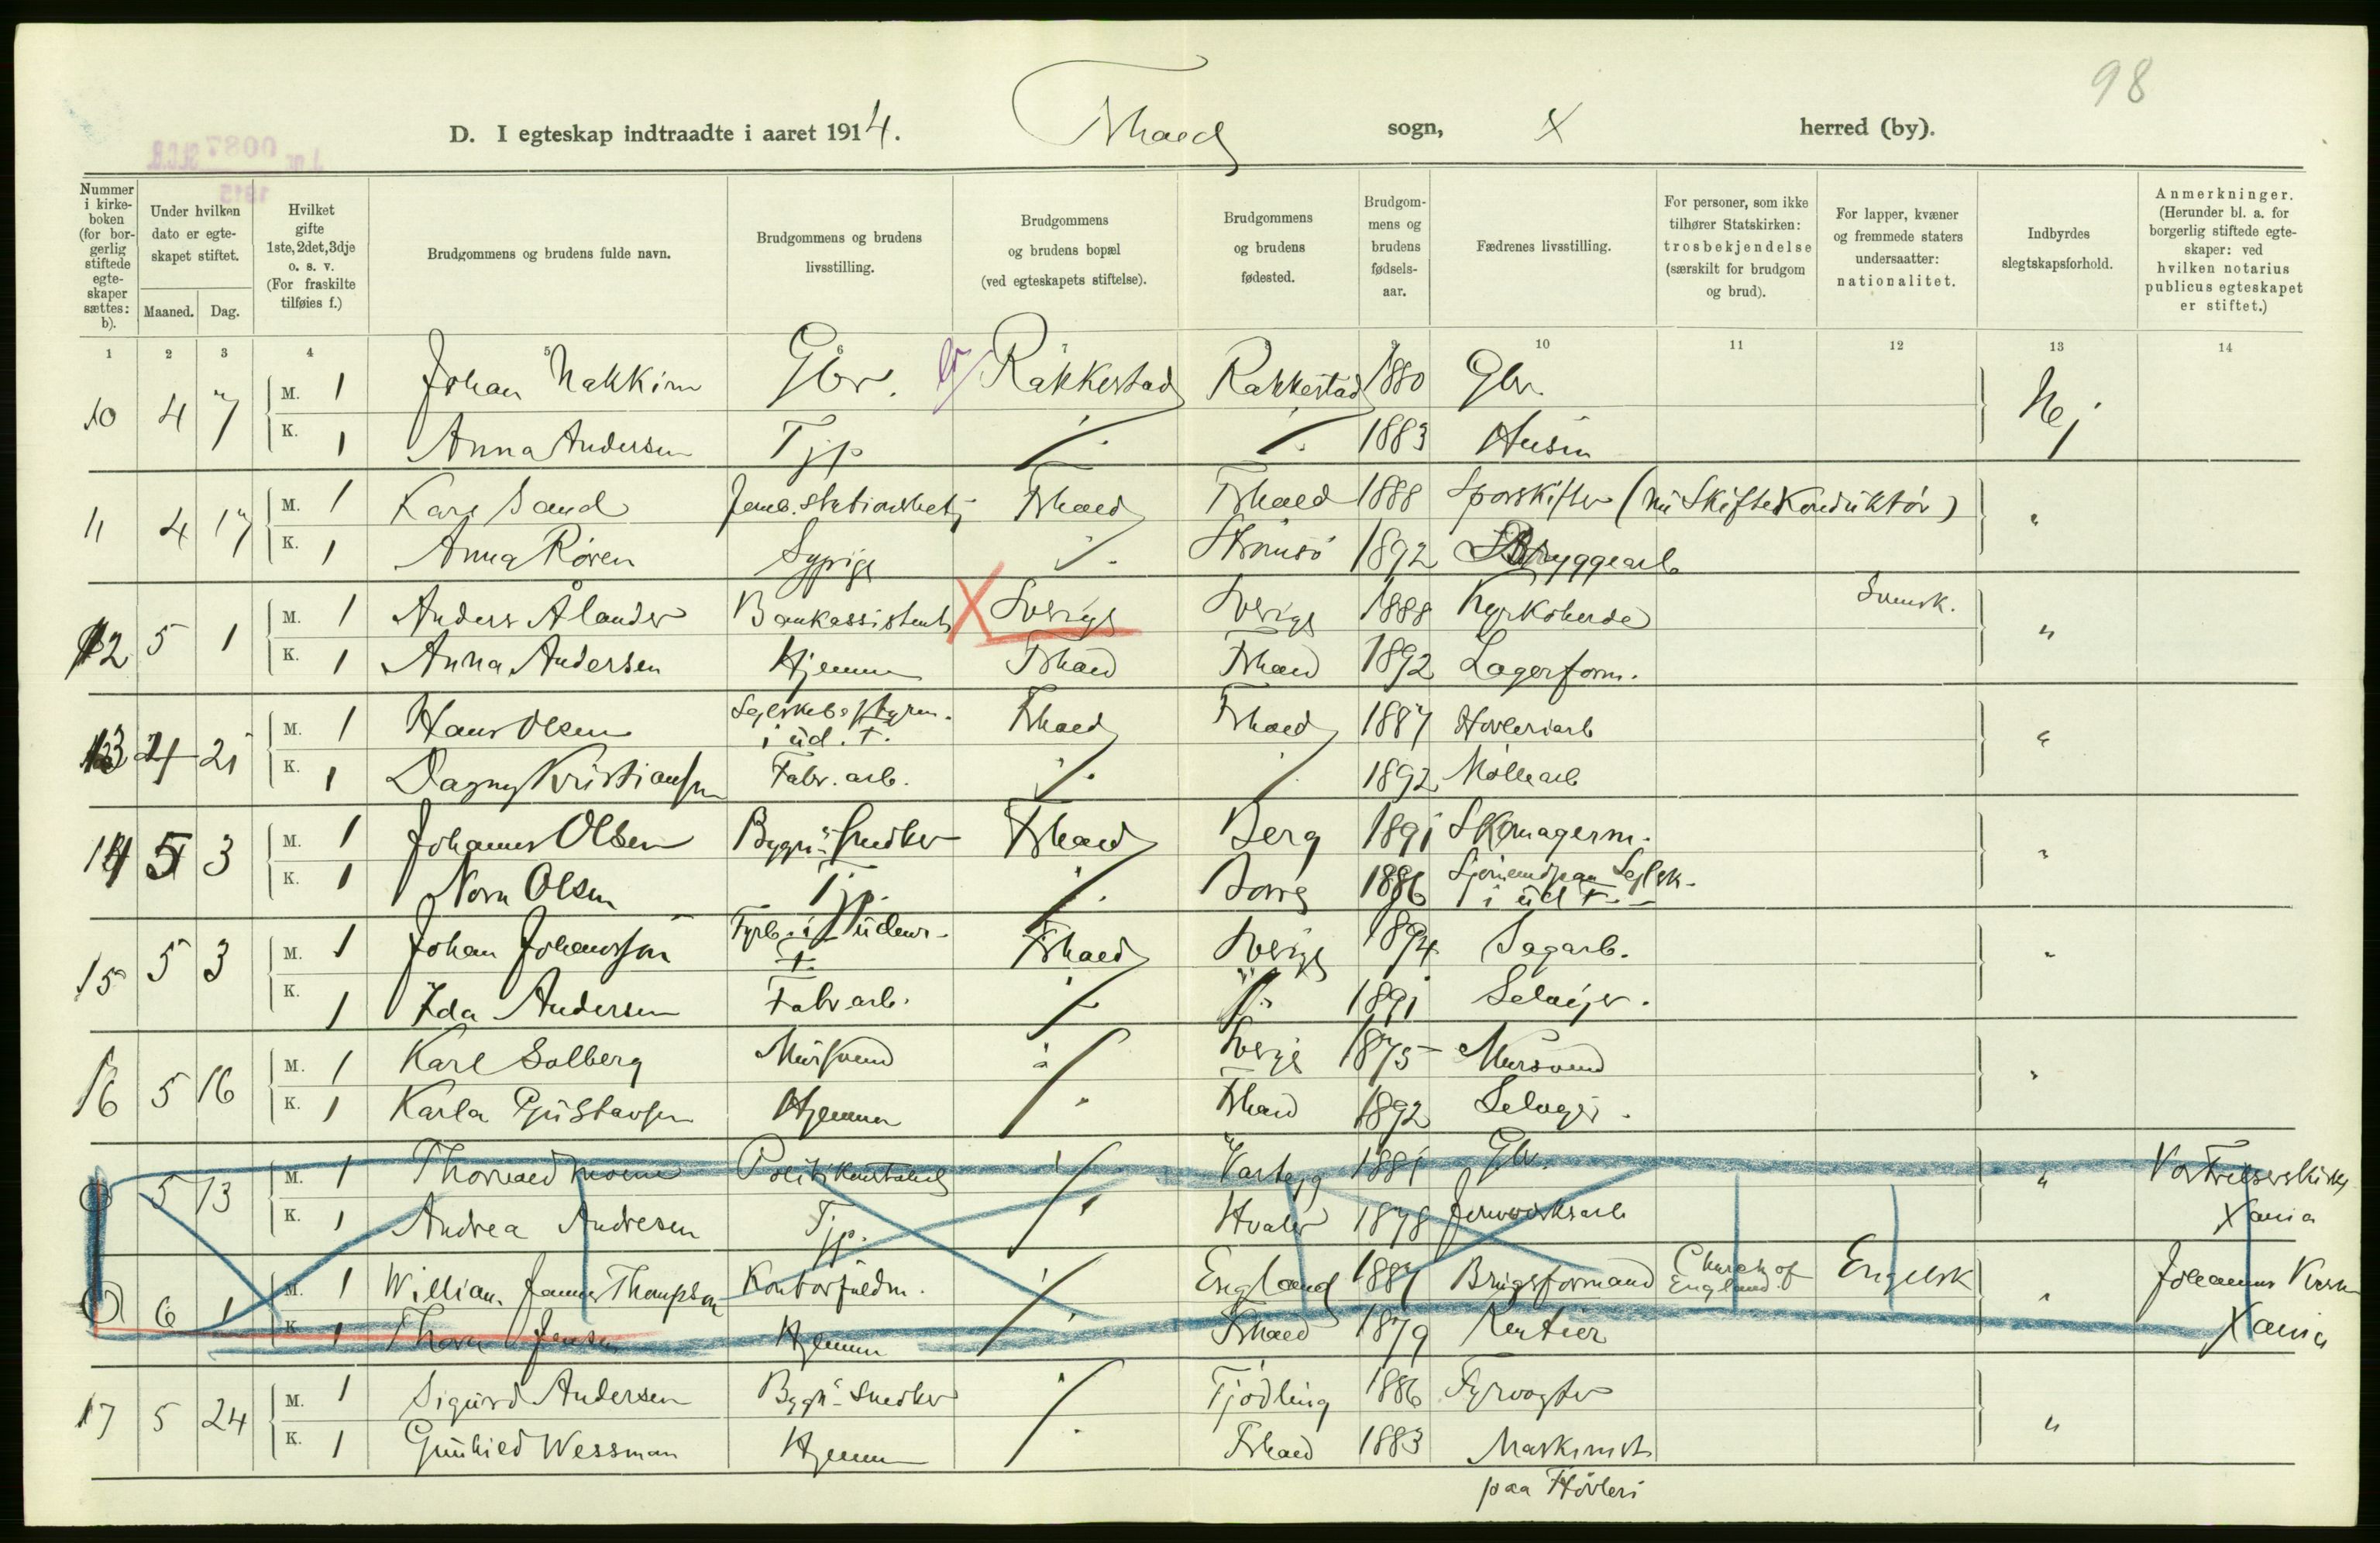 98
D. I egteskap indtraadte i aaret 1914. Fhald sogn, X herred (by).
Nummer i kirkeboken (for borgerlig stiftede egteskaper sættes: b).
Under hvilken dato er egteskapet stiftet.
Maaned. Dag.
Hvilket gifte 1ste, 2det, 3dje o. s. v. (For fraskilte tilføies f.)
Brudgommens og brudens fulde navn.
Brudgommens og brudens livsstilling.
Brudgommens og brudens bopæl (ved egteskapets stiftelse).
Brudgommens og brudens fødested.
Brudgommens og brudens fødselsaar.
Fædrenes livsstilling.
For personer, som ikke tilhører Statskirken: trosbekjendelse (særskilt for brudgom og brud).
For lapper, kvæner og fremmede staters undersaatter: nationalitet.
Indbyrdes slegtskapsforhold.
Anmerkninger. (Herunder bl. a. for borgerlig stiftede egteskaper: ved hvilken notarius publicus egteskapet er stiftet.)
1 2 3 4 5 6 7 8 9 10 11 12 13 14
10 4 7 M. 1 Johan Nakkim Gbr. Rakkestad Rakkestad 1880 Gbr. Nej
K. 1 Anna Andersen Tjp. 1883 Husm
11 4 17 M. 1 Karl Sand Jernb. stationsbetj Fhald Fhald 1888 Sporskifter (nu Skiftekonduktör) "
K. 1 Anna Rören Sypige Strömsö 1892 Bryggearb
12 5 1 M. 1 Anders Ålander Bankassistent X Sverige Sverige 1888 Kyrkoherde Svensk. "
K. 1 Anna Andersen Hjemme Fhald Fhald 1892 Lagerform.
13 4 21 M. 1 Hans Olsen Seglskibsstyrm. i ud. F. Fhald Fhald 1887 Hövleriarb "
K. 1 Dagny Kristiansen Fabr. arb. 1892 Möllearb
14 5 3 M. 1 Johannes Olsen Bygn. Snedker Fhald Berg 1891 Skomagerm. "
K. 1 Nora Olsen Tjp. Borg 1886 Sjömand paa Seglsk. i ud F.
15 5 3 M. 1 Johan Johansson Fyrb. i udenr. F. Fhald Sverige 1894 Sagarb. "
K. 1 Ida Andersen Fabr arb. 1891 Seleier.
16 5 16 M. 1 Karl Solberg Mursvend Sverige 1875 Mursvend "
K. 1 Karla Gustavsen Hjemme Fhald 1892 Seleier.
5 13 M. 1 Thorvald Moene Politikonstabel Varteig 1881 Gbr. " Vor Frelserskirke
K. 1 Andrea Andresen Tjp. Hvaler 1878 Jernverksarb Xania
6 1 M. 1 William James Thompson Kontorfuldm. England 1887 Brugsformand Church of England Engelsk " Johannes Kirken
K. 1 Thora Jensen Hjemme Fhald 1879 Rentier Xania
17 5 24 M. 1 Sigurd Andersen Bygn. Snedker Tjödling 1886 Fyrvogter "
K. 1 Gunhild Wessman Hjemme Fhald 1883 Maskinist
paa Hövleri